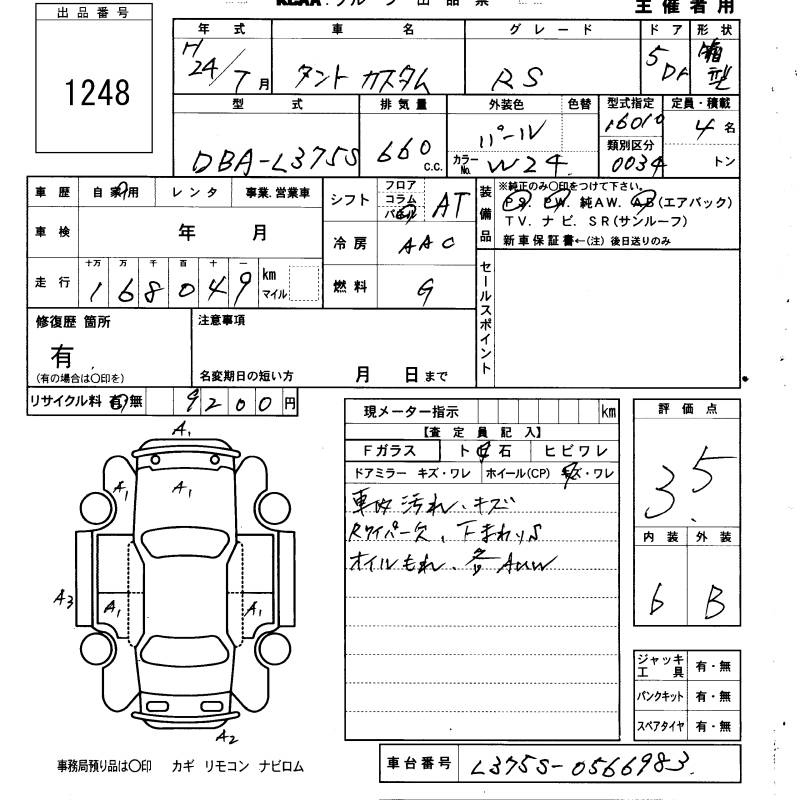 KCAA.グループ出品票 主催者用
出品番号
1248
年式 車名 グレード ドア 形状
H24/7月 タントカスタム RS 5Dr 箱型
型式 排気量 外装色 色替 型式指定 定員・積載
16010 4名
DBA-L375S 660c.c. パール 類別区分
カラーNo. W24 0034 トン
車歴 自家用 レンタ 事業.営業車
シフト フロア コラム パネル AT
装備品 ※純正のみ〇印をつけて下さい。
PS. PW. 純AW. AB(エアバック)
TV. ナビ. SR(サンルーフ)
新車保証書←(注) 後日送りのみ
車検 年 月
冷房 AAC
走行 十万 万 千 百 十 一
168049 km マイル
燃料 G
セールスポイント
修復歴 箇所
有
(有の場合は〇印を)
注意事項
名変期日の短い方 月 日まで
リサイクル料 有・無 9200円
現メーター指示 km
【査定員記入】
Fガラス トビ石 ヒビワレ
ドアミラー キズ・ワレ ホイール(CP) キズ・ワレ
車内汚れ、キズ
Rワイパー欠、下まわりS
オイルもれ、各AUW
評価点
3.5
内装 外装
6 B
A1
A1 A1
A3 A1 A1
A2
ジャッキ工具 有・無
パンクキット 有・無
スペアタイヤ 有・無
事務局預り品は〇印 カギ リモコン ナビロム
車台番号 L375S-0566983